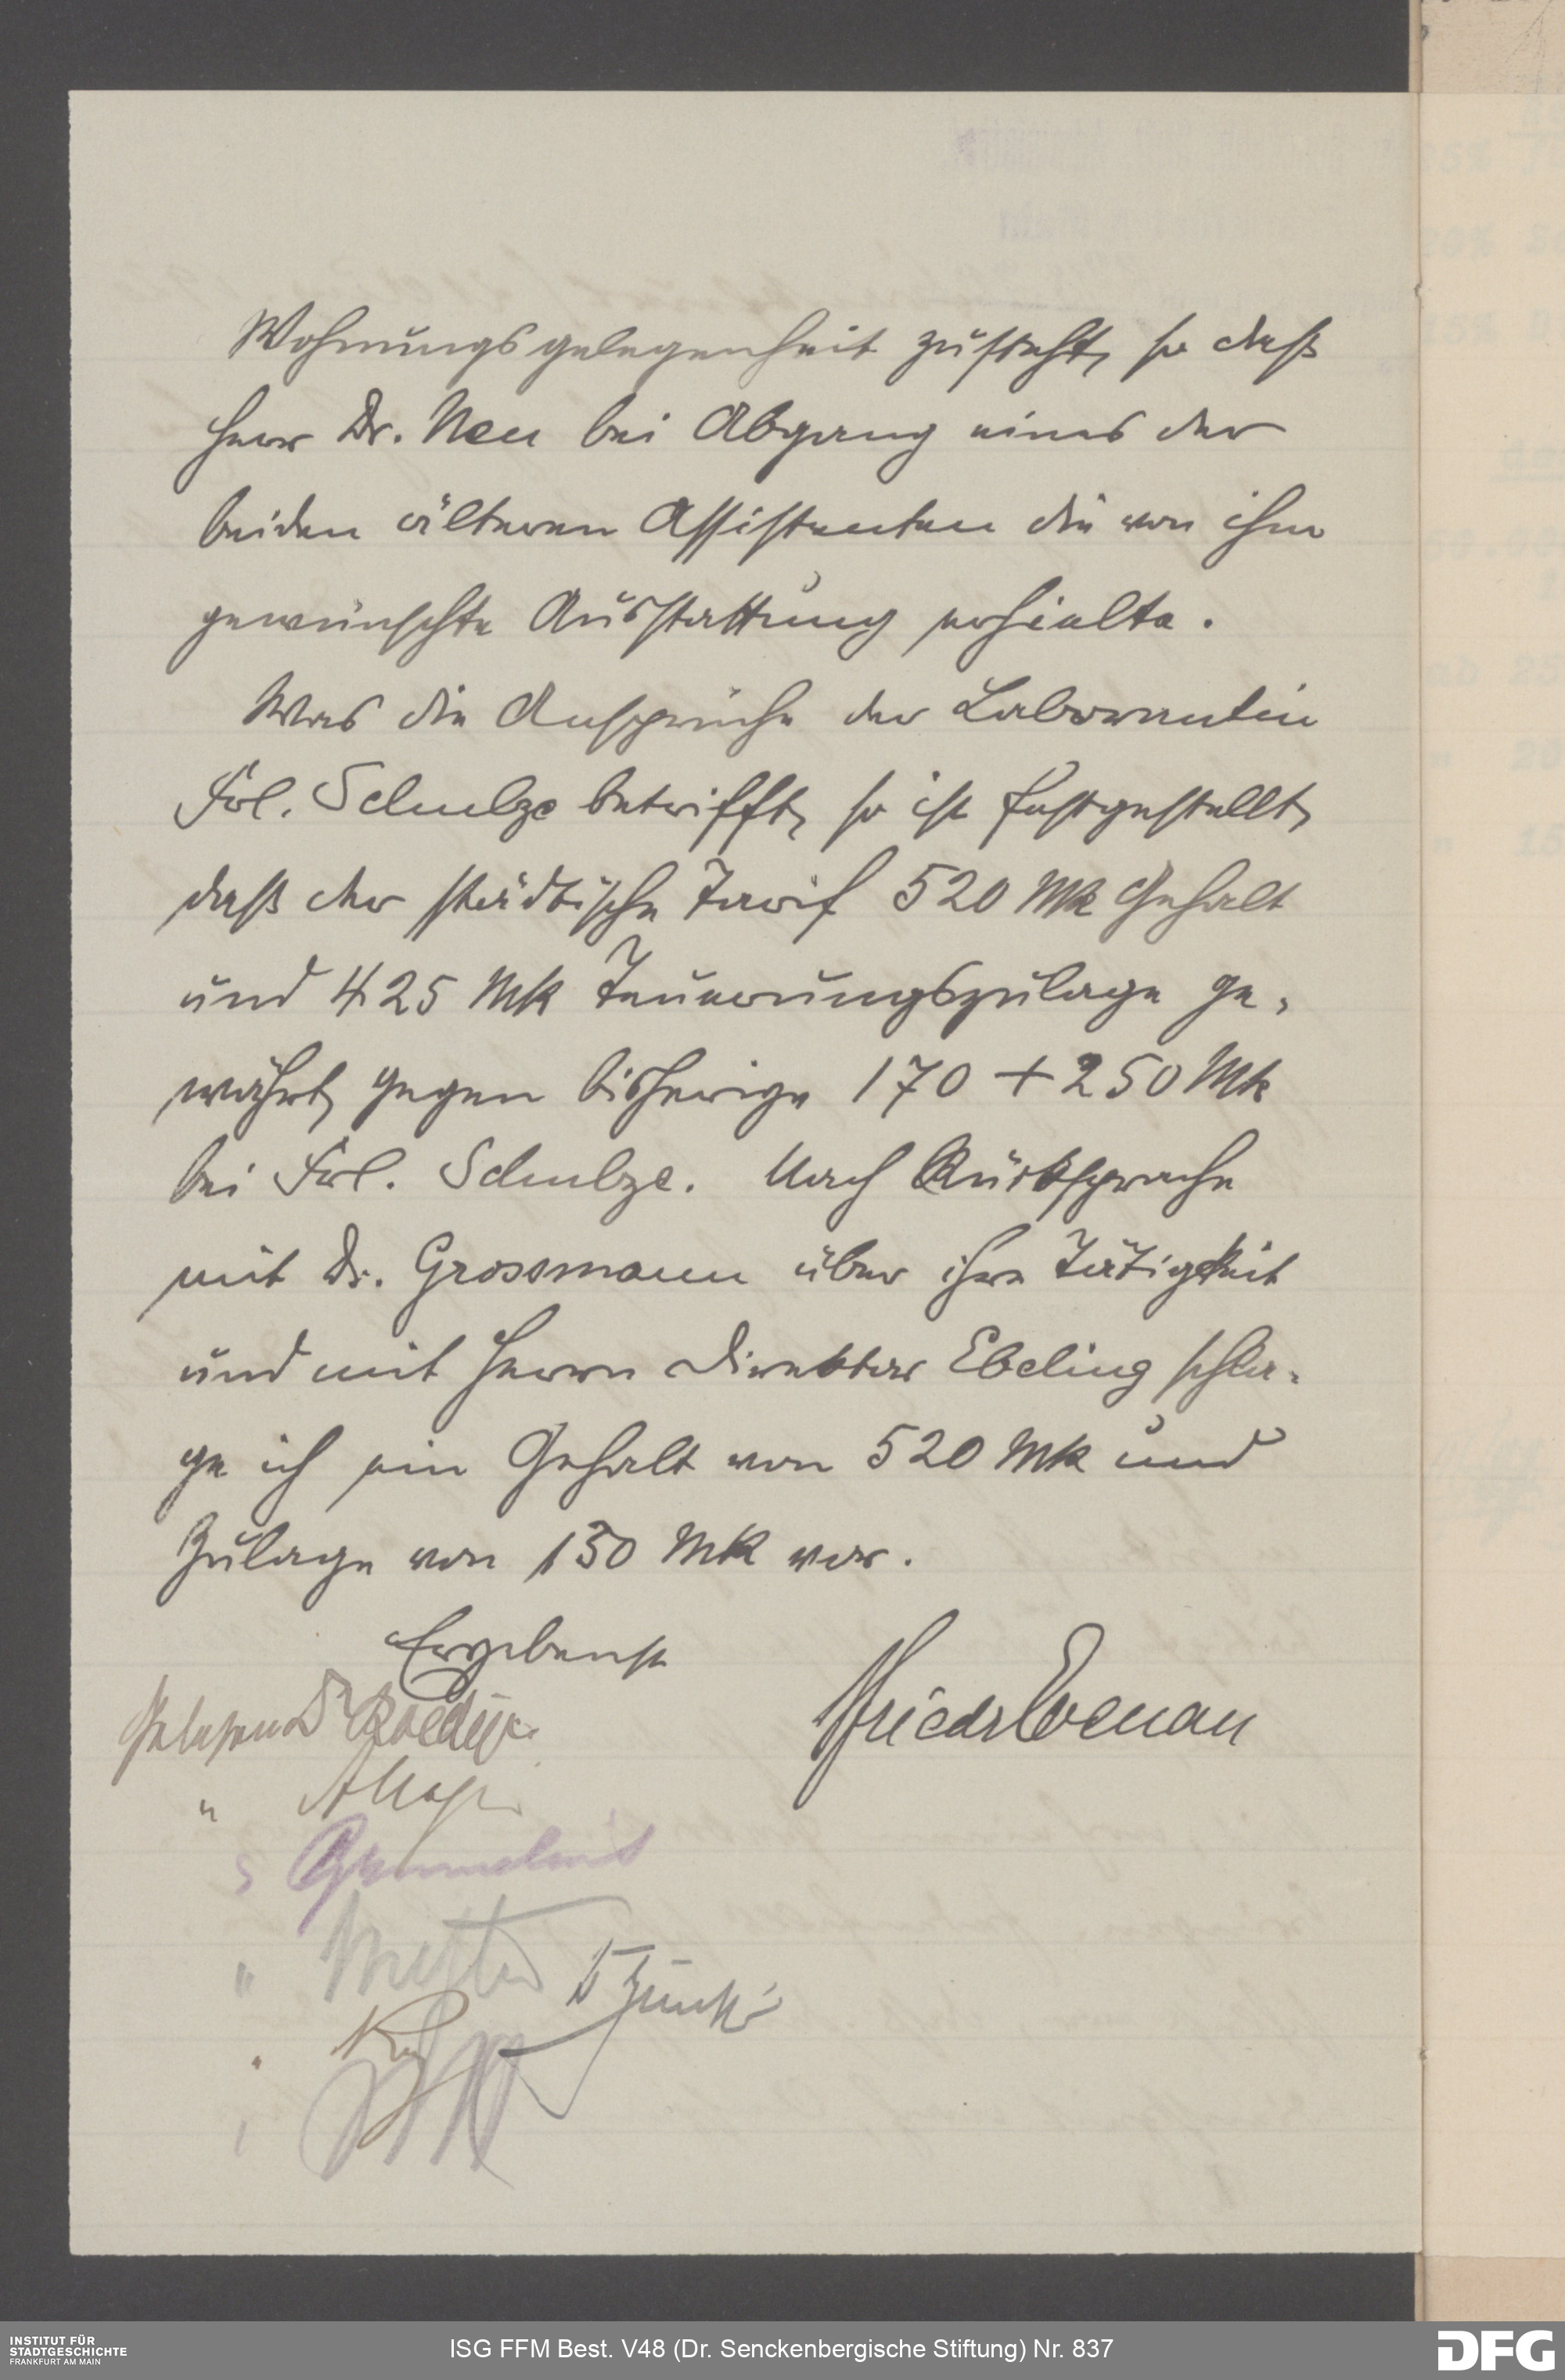 Wohnungsgelegenheit zusteht, so daß
Herr Dr. Neu bei Abgang eines der
beiden älteren Assistenten die von ihm
gewünschte Ausstattung erhielte.
Was die Ansprüche der Laborantin
Frl. Schulze betrifft, so ist festgestellt,
daß der städtische Tarif 520 Mk Gehalt
und 425 Mk Teuerungszulage ge-
währt, gegen bisherige 170 + 250 Mk
bei Frl. Schulze. Nach Rücksprache
mit Dr. Grossmann über ihre Tätigkeit
und mit Herrn Direktor Ebeling schla-
ge ich ein Gehalt von 520 Mk und
Zulage von 130 Mk vor.
Ergebenst
Gelesen Dr Roediger
Friedr Ebenau
"
"
"
INSTITUT FÜR
STADTGESCHICHTE
FRANKFURT AM MAIN
ISG FFM Best. V48 (Dr. Senckenbergische Stiftung) Nr. 837
DFG